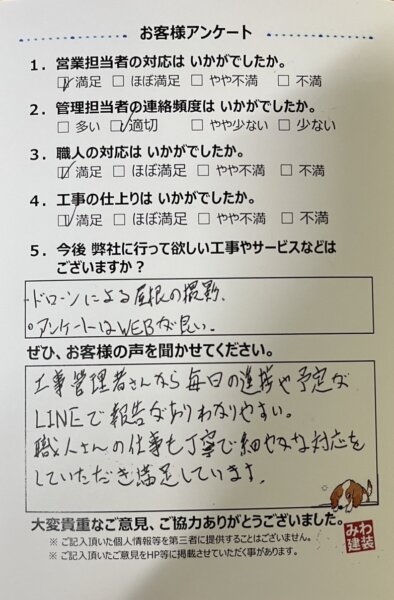 お客様アンケート
1．営業担当者の対応は いかがでしたか。
☑ 満足 □ ほぼ満足 □ やや不満 □ 不満
2．管理担当者の連絡頻度は いかがでしたか。
□ 多い ☑ 適切 □ やや少ない □ 少ない
3．職人の対応は いかがでしたか。
☑ 満足 □ ほぼ満足 □ やや不満 □ 不満
4．工事の仕上りは いかがでしたか。
☑ 満足 □ ほぼ満足 □ やや不満 □ 不満
5．今後 弊社に行って欲しい工事やサービスなどは
ございますか？
・ドローンによる屋根の撮影.
。アンケートはWEBが良い。
ぜひ、お客様の声を聞かせてください。
工事管理者さんから毎日の進捗や予定が
LINEで報告がありわかりやすい。
職人さんの仕事も丁寧で細やかな対応を
していただき満足しています.
大変貴重なご意見、ご協力ありがとうございました。
※ ご記入頂いた個人情報等を第三者に提供することはございません。
※ ご記入頂いたご意見をHP等に掲載させていただく事があります。
みわ
建装